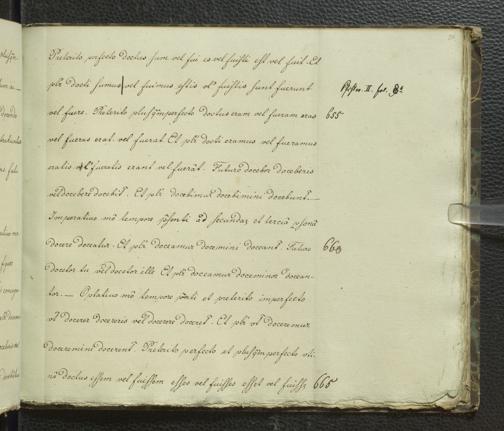 Preterito perfecto doctus sum vel fui es vel fuisti est vel fuit. Et
plr docti sumus vel fuimus estis vl fuistis sunt fuerunt
vel fuere. Preterito plusqmperfecto doctus eram vel fueram eras 655
vel fueras erat vel fuerat Et plr docti eramus vel fueramus
eratis vl fueratis erant vel fuerat. Futuro docebor doceberis
vel docebere docebit. Et plr docebimur docebimini docebunt.—
Imperativo mo tempore psenti ad secundas et tercia psona
docere doceatur. Et plr doceamur docemini doceant. Futuro 660
docetor tu vel docetor ille Et plr doceamur doceminor docean-
tor. — Optativo mo tempore pnti et preterito imperfecto
vt docerer docereris vel docerere doceret. Et plr vt doceremur
doceremini docerent. Preterito perfecto et plusqmperfecto vti-
na doctus essem vel fuissem esses vel fuisses esset vel fuisse 665